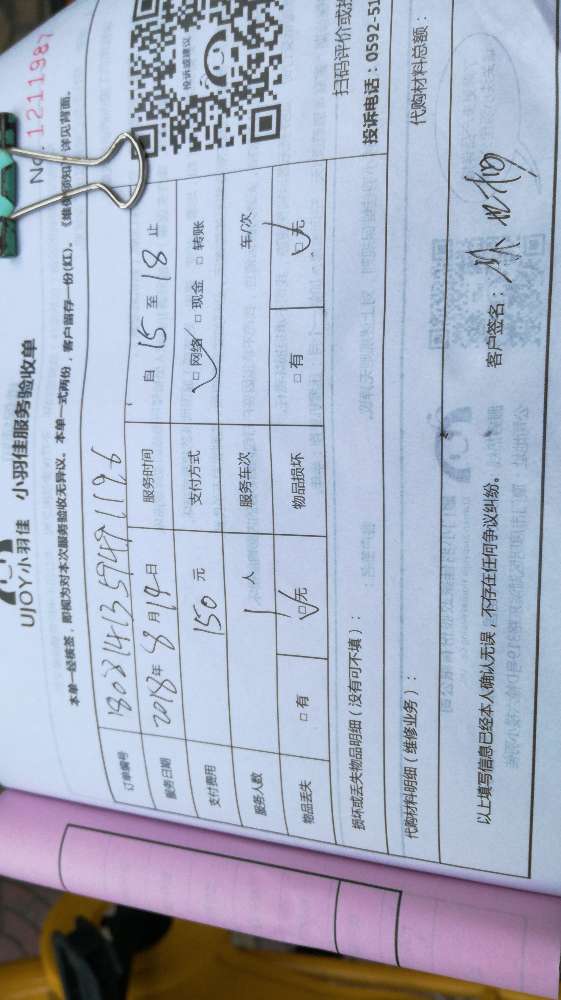 No. 1211987
UJOY小羽佳 小羽佳服务验收单
本单一经核签，即视为对本次服务验收无异议。本单一式两份，客户留存一份(红)。《维修须知》详见背面。
订单编号
服务日期 2018年8月14日 服务时间 自 15 至 18 止
支付费用 150 元 支付方式 □网络 □现金 □转账
服务人数 1 人 服务车次 车/次
物品丢失 □有 □无 物品损坏 □有 □无
损坏或丢失物品明细（没有可不填）：
代购材料明细（维修业务）： 代购材料总额：
以上填写信息已经本人确认无误，不存在任何争议纠纷。 客户签名：
投诉或建议
扫码评价或投
投诉电话：0592-51